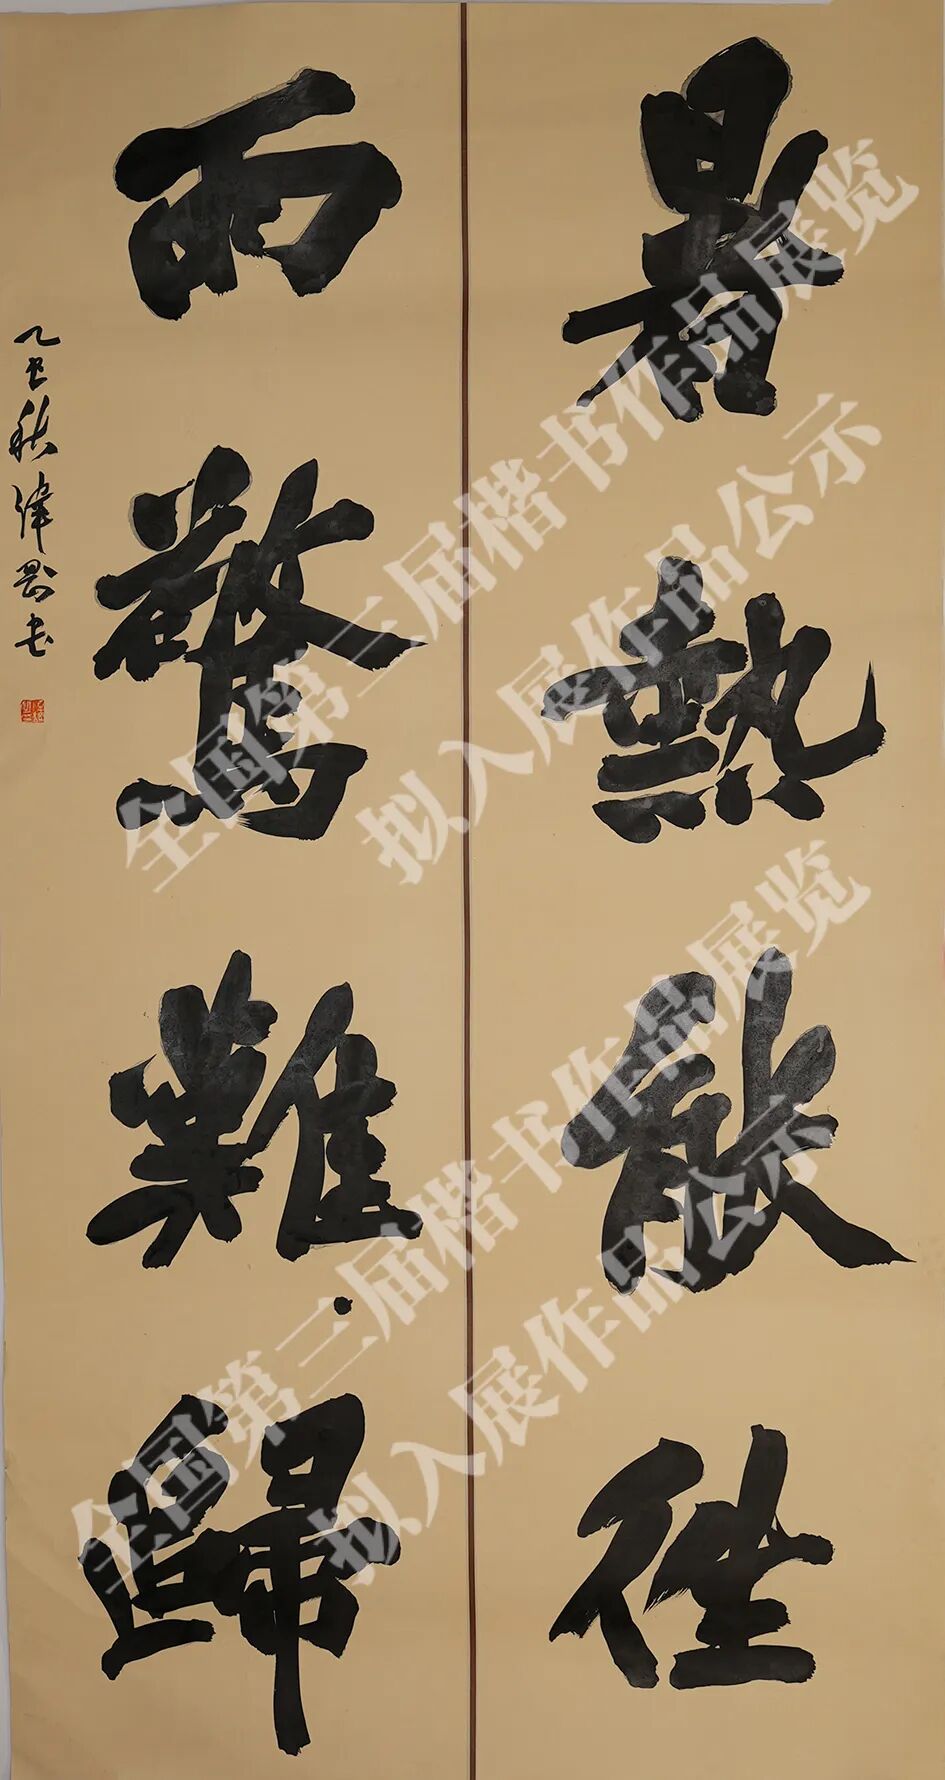 暑熱徃
而驚難歸
乙巳秋書
全国第三届楷书作品展览
拟入展作品公示
全国第三届楷书作品展览
拟入展作品公示